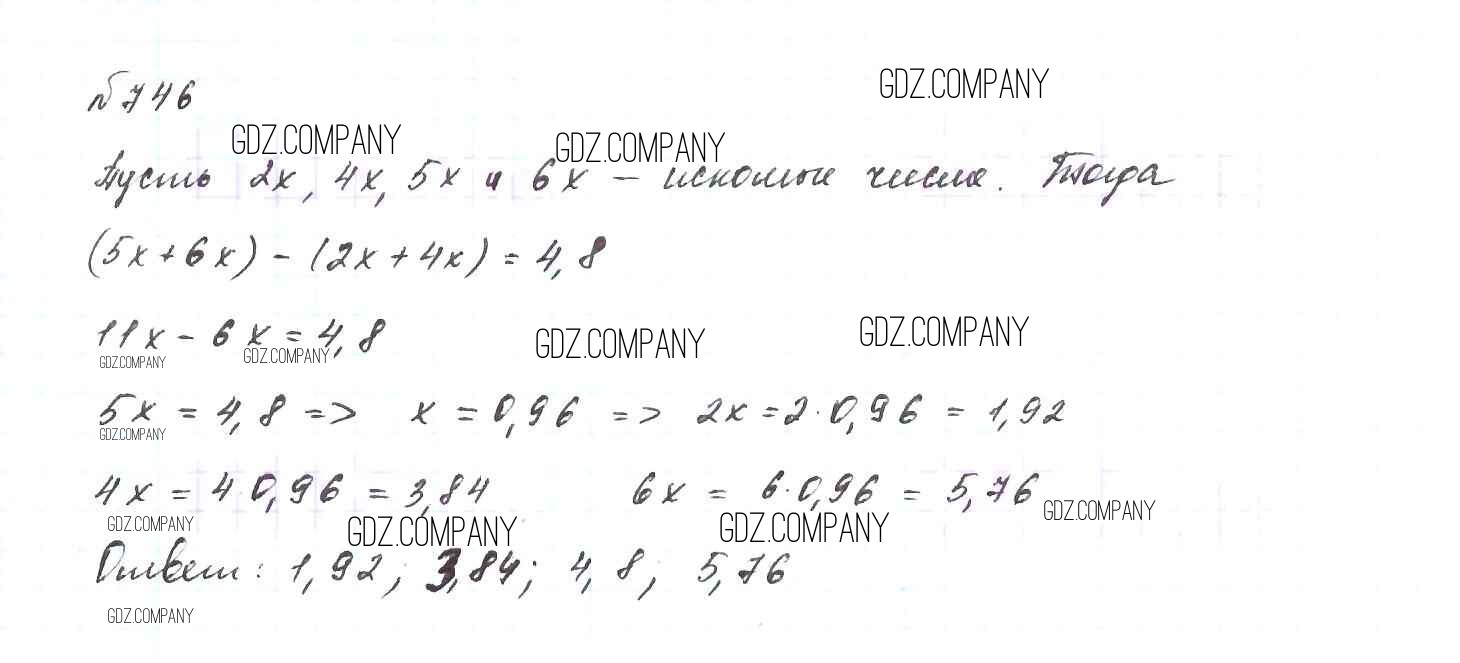 №746
GDZ.COMPANY
GDZ.COMPANY GDZ.COMPANY
Пусть 2x, 4x, 5x и 6x – искомые числа. Тогда
(5x+6x) - (2x+4x) = 4,8
11x - 6x = 4,8
GDZ.COMPANY GDZ.COMPANY
GDZ.COMPANY GDZ.COMPANY
5x = 4,8 => x = 0,96 => 2x = 2·0,96 = 1,92
GDZ.COMPANY
4x = 4·0,96 = 3,84 6x = 6·0,96 = 5,76
GDZ.COMPANY GDZ.COMPANY GDZ.COMPANY GDZ.COMPANY
Ответ: 1,92; 3,84; 4,8; 5,76
GDZ.COMPANY